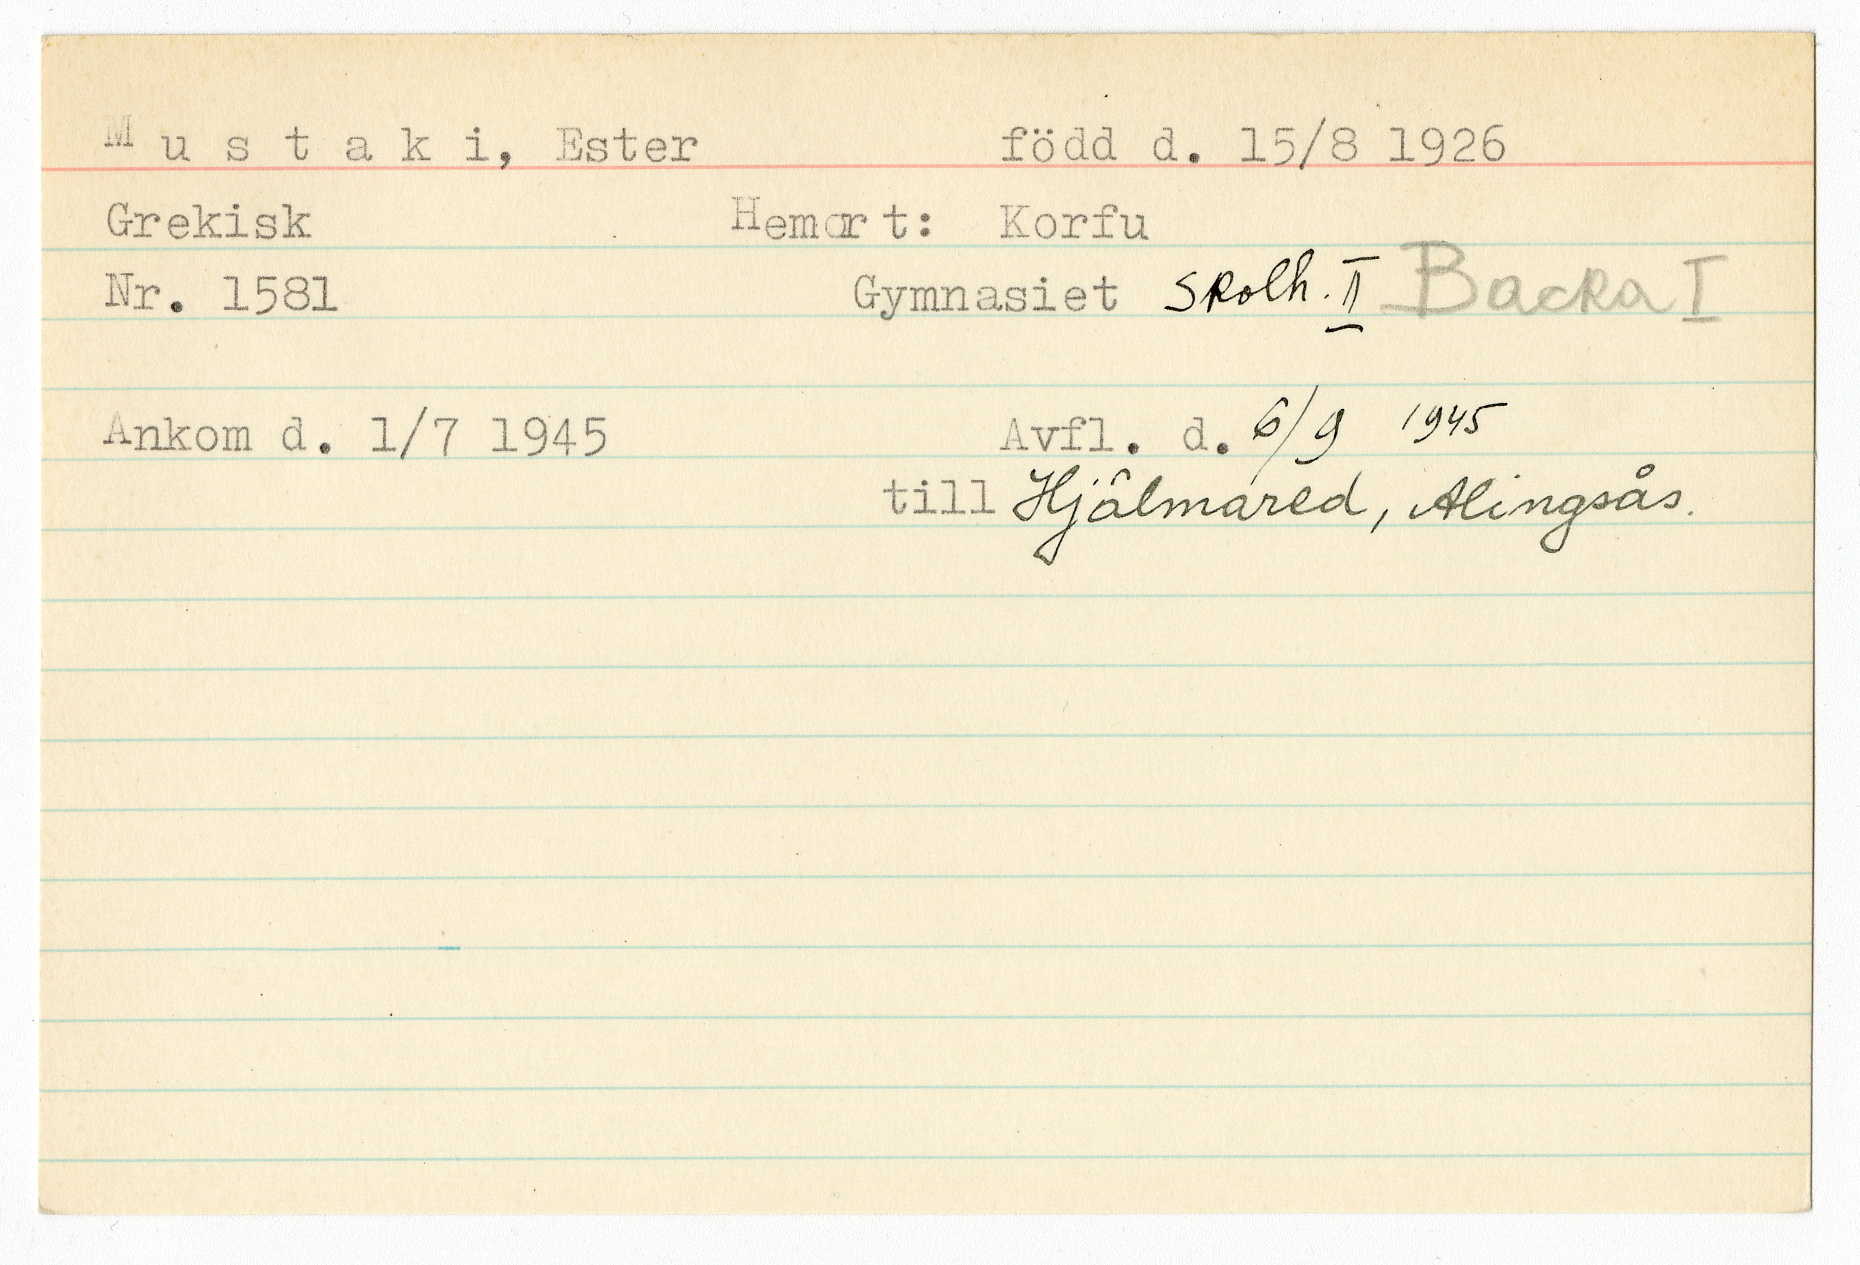 M u s t a k i, Ester född d. 15/8 1926
Grekisk Hemort: Korfu
Nr. 1581 Gymnasiet Skolh. II Backa I
Ankom d. 1/7 1945 Avfl. d. 6/9 1945
till Hjälmared, Alingsås.